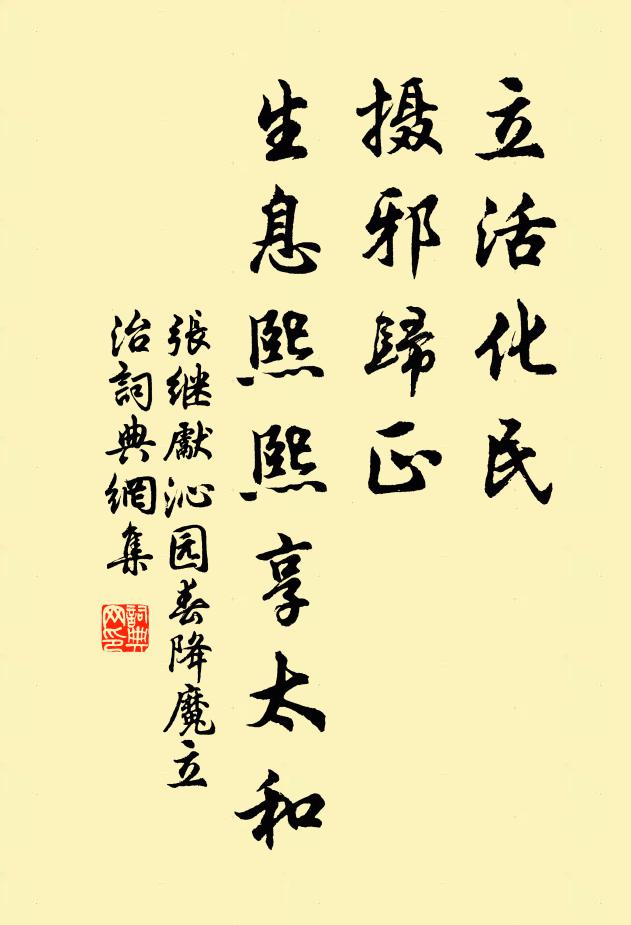 立活化民
摄邪歸正
生息熙熙享太和
張继獻沁园春降魔立
治詞典網集
詞典
网印